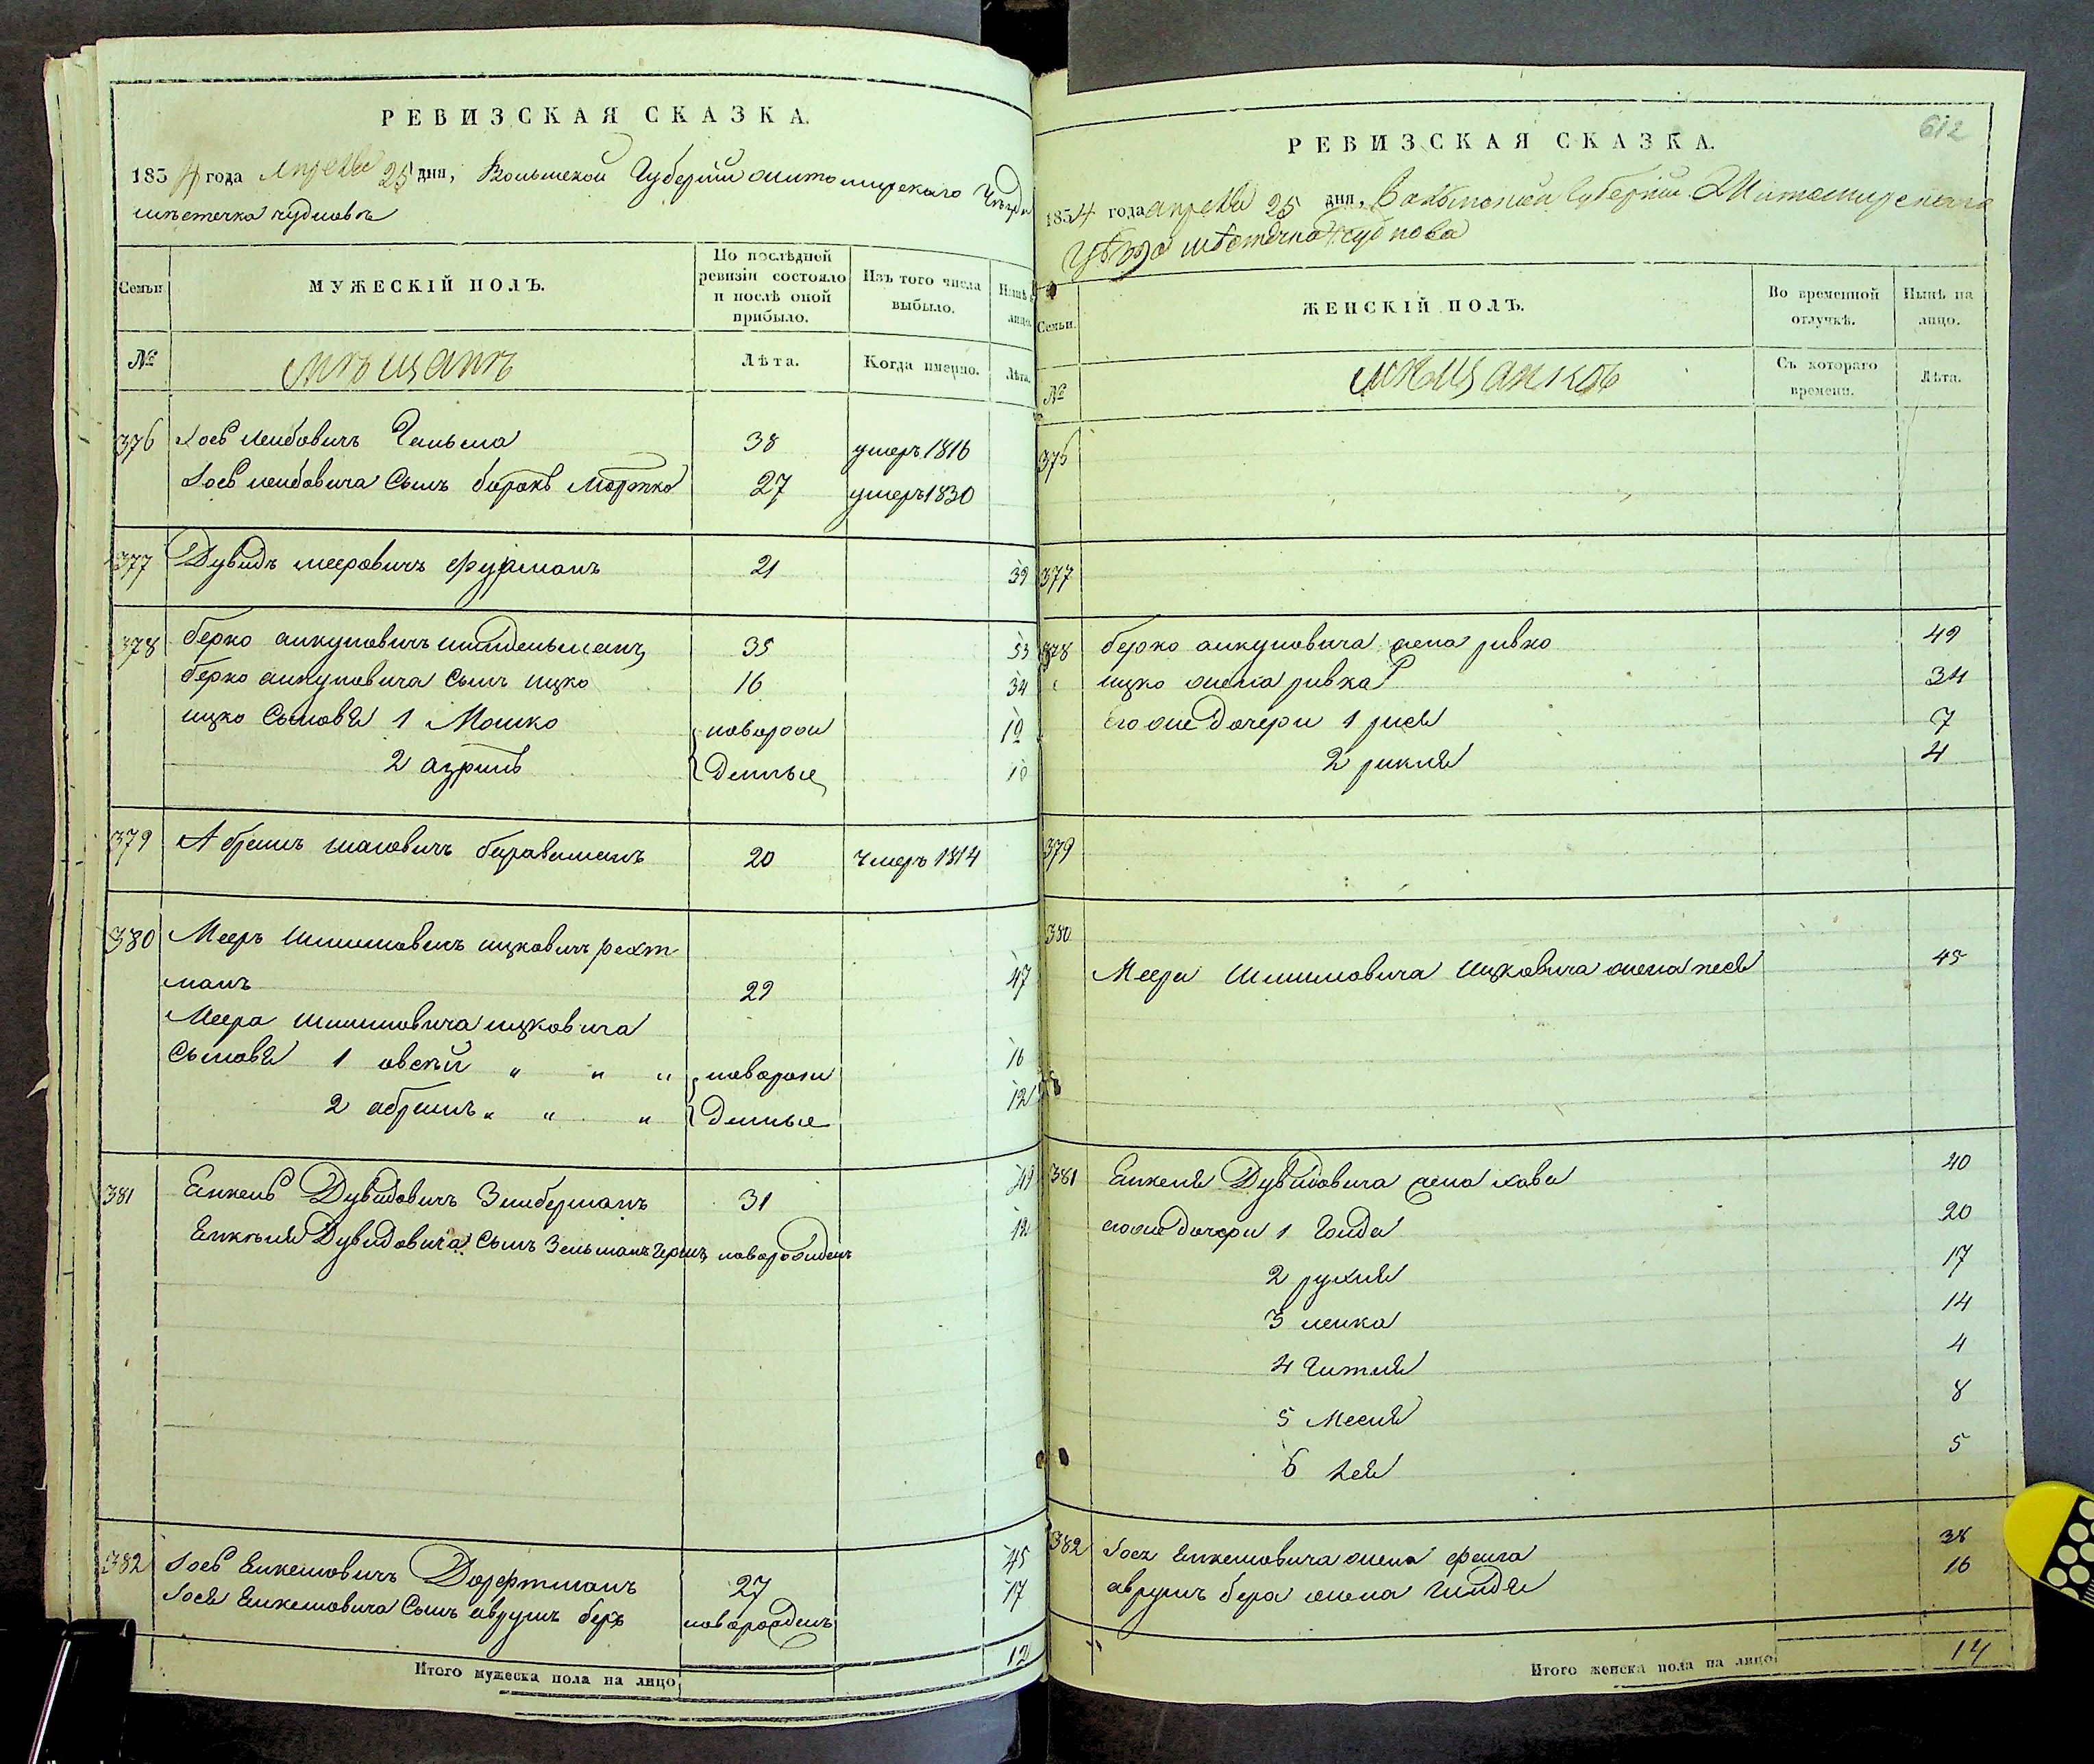 РЕВИЗСКАЯ СКАЗКА.
1834 года Апреля 25 дня, Волынской Губернии Житомирского Уезда
местечка Чуднова
Семьи
МУЖЕСКІЙ ПОЛЪ.
По послѣдней ревизіи состояло и послѣ оной прибыло.
Изъ того числа выбыло.
Нынѣ на лицо.
№
мѣщанъ
Лѣта.
Когда именно.
Лѣта.
376 Иось Лейбовичъ Гельма 38 умеръ 1816
Иось Лейбовича Сынъ борохъ Мортко 27 умеръ 1830
377 Дувидъ мееровичъ Фурманъ 21 39
378 берко анкуповичъ 35 53
берко анкуповича Сынъ ицко 16 34
ицко Сыновя 1 Мошко новорож 12
2 азриль денные 10
379 Абрамъ 20 Умеръ 1814
380 Мееръ Шиимовичъ ицковичъ рехт
манъ 29 47
Меера Шиимовича ицковича
Сыновя 1 овсѣй " " " новорож 16
2 абрамъ " " " денные 12
381 Енкель Дувидовичъ Зильберманъ 31 49
Енкеля Дувидовича Сынъ Зельманъ Гершъ новорожденъ 12
382 Иось Енкелювичъ Дорфтманъ 27 45
Иося Енкелювича Сынъ аврумъ беръ новорожденъ 17
Итого мужеска пола на лицо 12
612
РЕВИЗСКАЯ СКАЗКА.
1834 года апреля 25 дня, Волынской Губернии Житомирскаго
Уѣзда мѣстечка Чуднова
Семьи.
ЖЕНСКІЙ ПОЛЪ.
Во временной отлучкѣ.
Нынѣ на лицо.
№
мѣщанкъ
Съ котораго времени.
Лѣта.
376
377
378 берко анкуповича жена ривко 49
ицко жена ривка 34
его же дочери 1 рися 7
2 рикля 4
379
380
Меера Шиимовича Ицковича жена песя 45
381 Енкеля Дувидовича жена хава 40
его же дочери 1 Голда 20
2 рухля 17
3 ленка 14
4 Гитля 4
5 Месля 8
6 лея 5
382 Иося Енкелювича жена фейга 38
аврумъ бера жена Гиндя 16
Итого женска пола на лицо 14